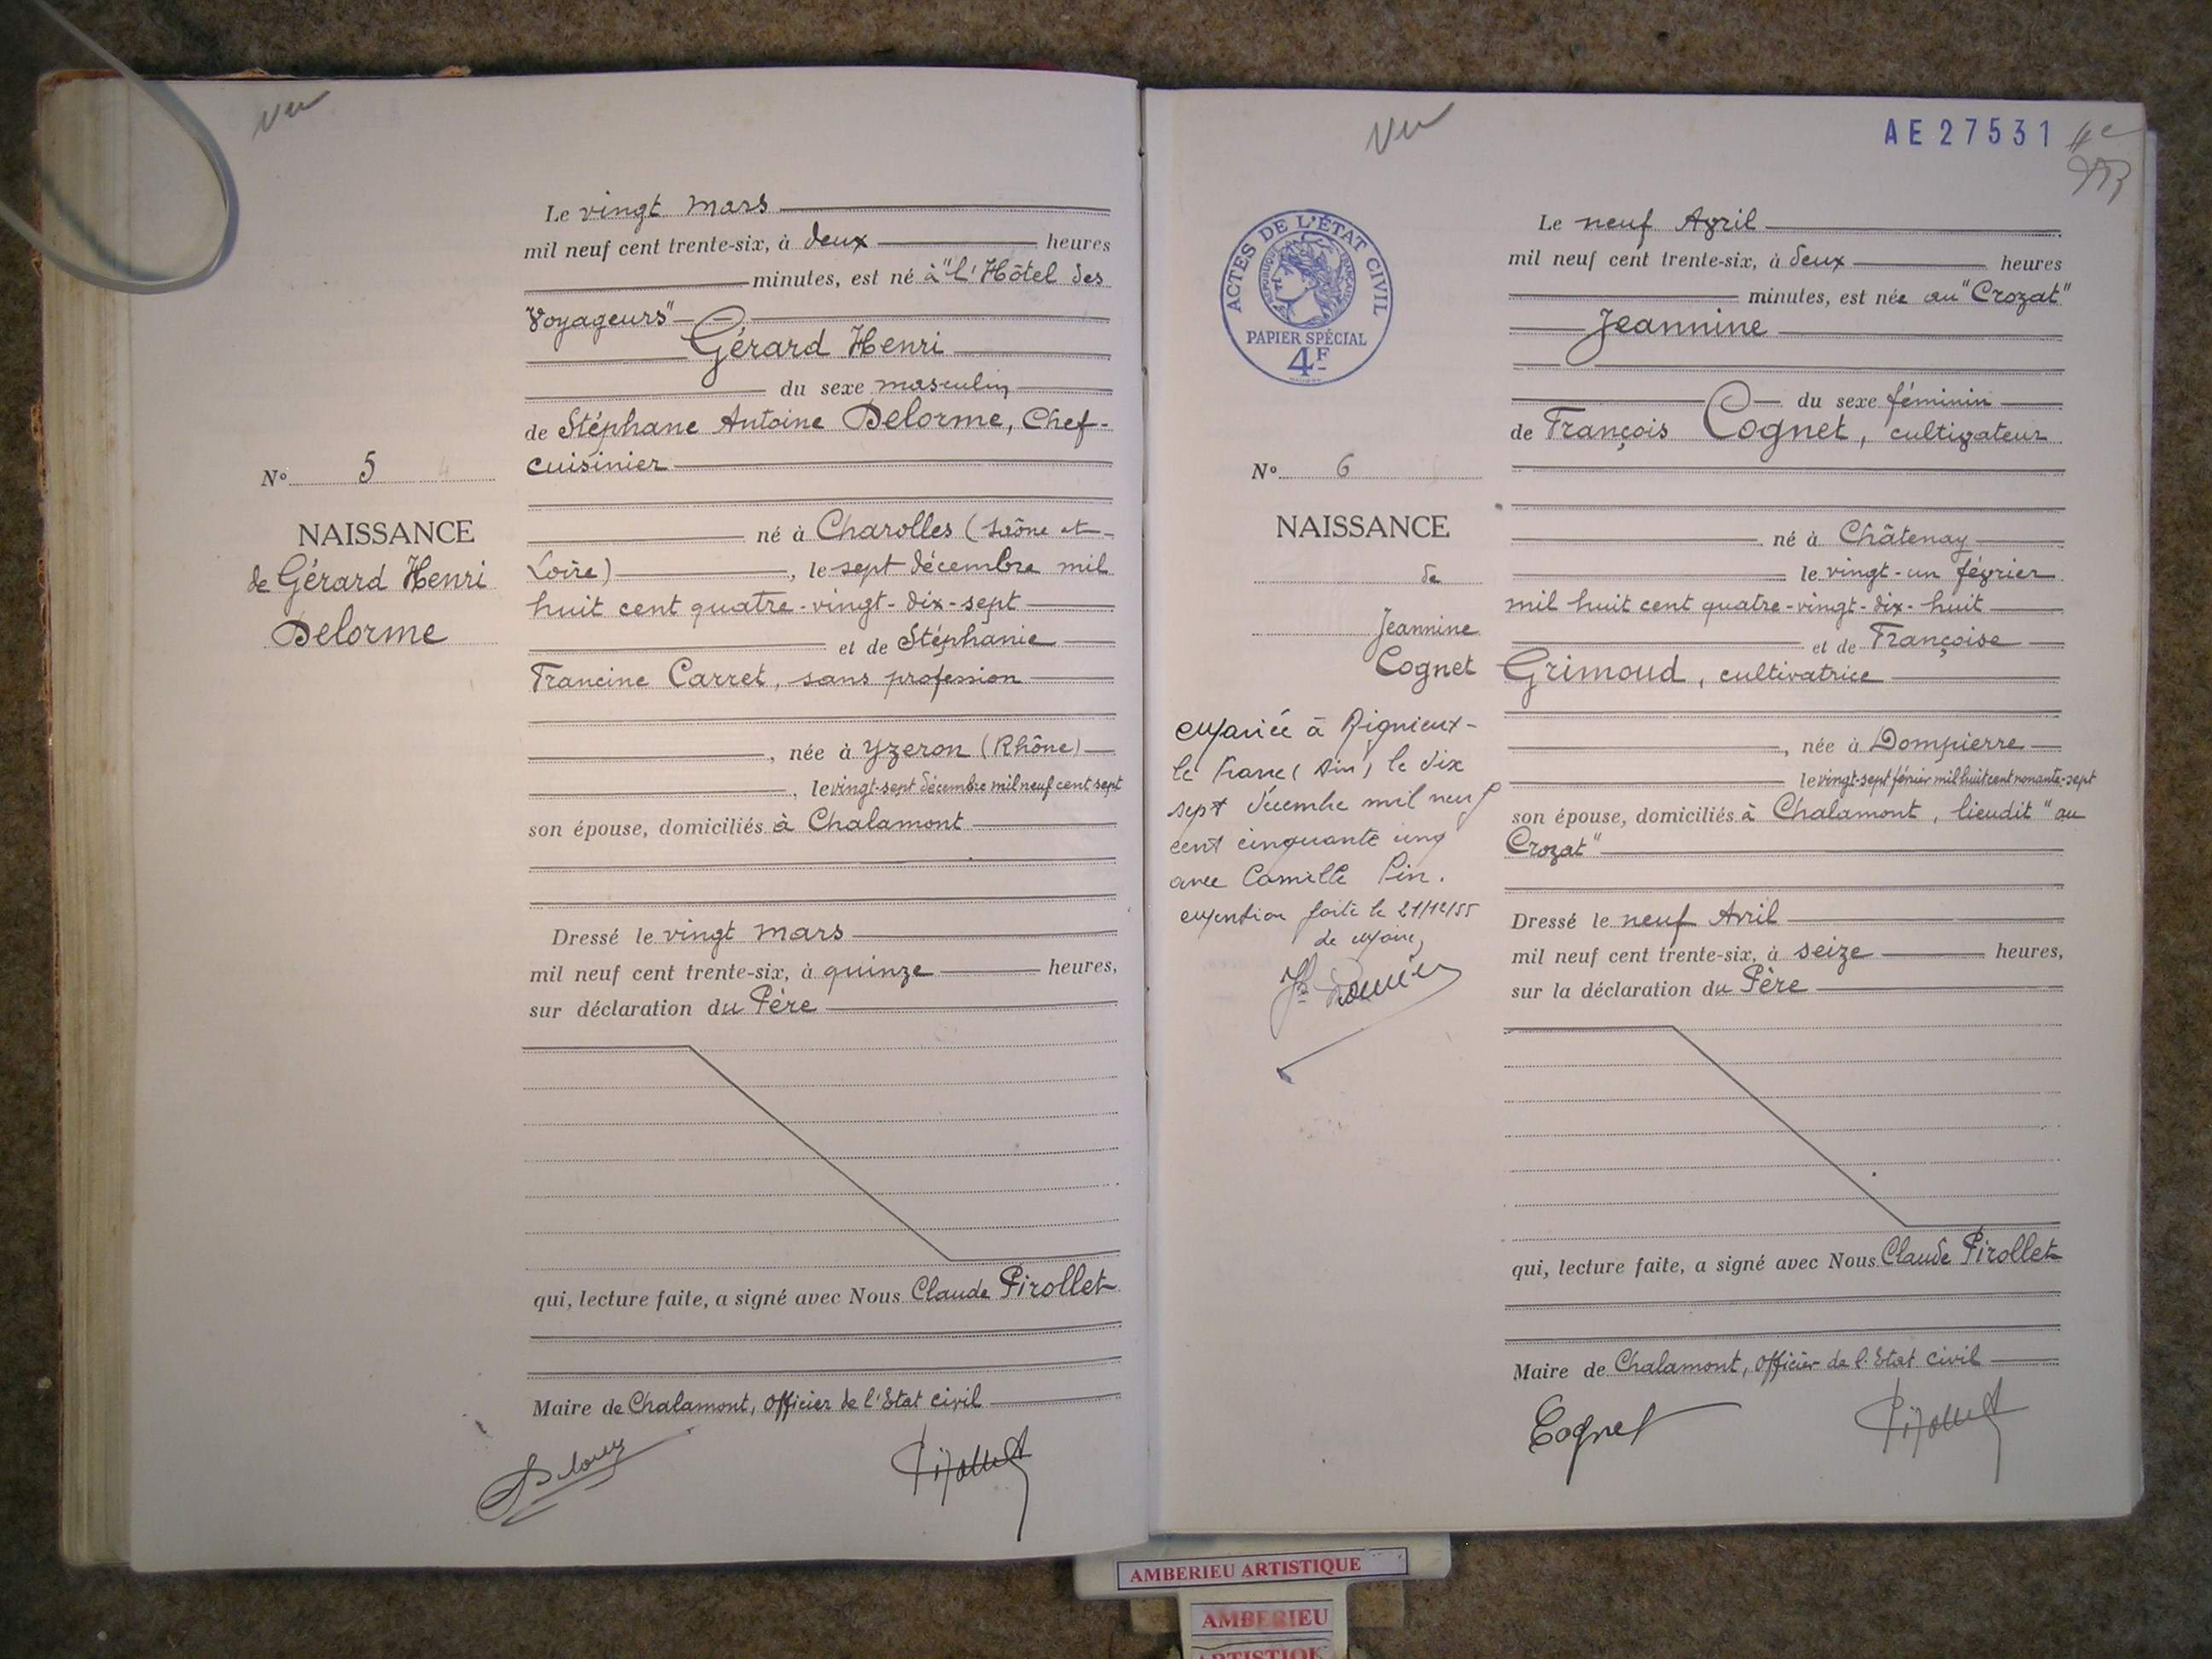 Vu
Le vingt mars
mil neuf cent trente-six, à deux heures
minutes, est né à "l'Hôtel des
Voyageurs"
Gérard Henri
du sexe masculin
de Stéphane Antoine Delorme, Chef-
cuisinier
né à Charolles (Saône et-
Loire), le sept décembre mil
huit cent quatre-vingt-dix-sept
et de Stéphanie
Francine Carret, sans profession
, née à Yzeron (Rhône)
, le vingt-sept décembre mil neuf cent sept
son épouse, domiciliés à Chalamont
Dressé le vingt mars
mil neuf cent trente-six, à quinze heures,
sur déclaration du Père
qui, lecture faite, a signé avec Nous Claude Pirollet
Maire de Chalamont, Officier de l'Etat civil
N° 5
NAISSANCE
de Gérard Henri
Delorme
Vu
AE27531
ACTES DE L'ÉTAT CIVIL
RÉPUBLIQUE FRANÇAISE
PAPIER SPÉCIAL
4F
Le neuf Avril
mil neuf cent trente-six, à deux heures
minutes, est née au "Crozat"
Jeannine
du sexe féminin
de François Cognet, cultivateur
né à Châtenay
le vingt-un février
mil huit cent quatre-vingt-dix-huit
et de Françoise
Grimoud, cultivatrice
, née à Dompierre
le vingt-sept février mil huit cent nonante-sept
son épouse, domiciliés à Chalamont, lieudit "au
Crozat"
Dressé le neuf Avril
mil neuf cent trente-six, à seize heures,
sur la déclaration du Père
qui, lecture faite, a signé avec Nous Claude Pirollet
Maire de Chalamont, Officier de l'Etat civil
Cognet Pirollet
N° 6
NAISSANCE
de
Jeannine
Cognet
Mariée à Rignieux-
le Franc (Ain) le dix
sept décembre mil neuf
cent cinquante cinq
avec Camille Pin.
Mention faite le 21/12/55
Le Maire,
AMBERIEU ARTISTIQUE
AMBERIEU
ARTISTIQUE